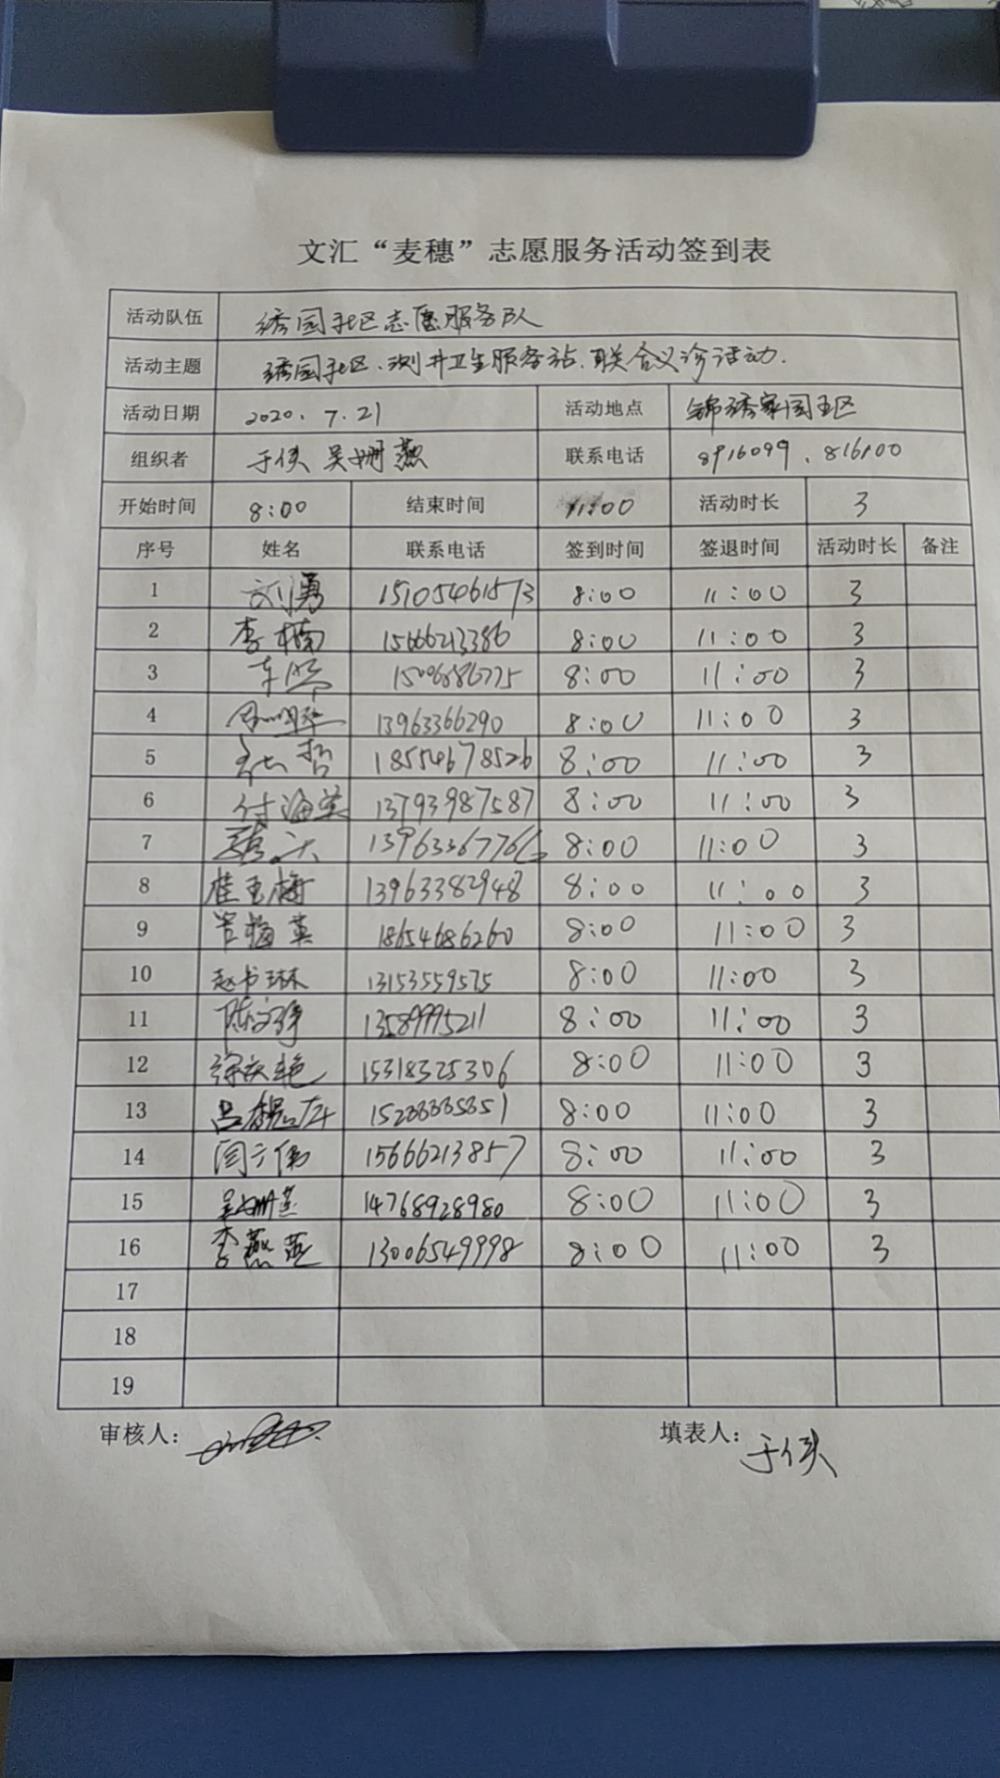 文汇“麦穗”志愿服务活动签到表
活动队伍 绣园社区志愿服务队
活动主题 绣园社区、测井卫生服务站、联合义诊活动.
活动日期 2020.7.21 活动地点 锦绣家园五区
组织者 于侠 吴姗燕 联系电话 8916099、816100
开始时间 8:00 结束时间 11:00 活动时长 3
序号 姓名 联系电话 签到时间 签退时间 活动时长 备注
1 刘勇 15105461573 8:00 11:00 3
2 李楠 15666213386 8:00 11:00 3
3 15096686775 8:00 11:00 3
4 13963366290 8:00 11:00 3
5 18554678526 8:00 11:00 3
6 付海英 13793987587 8:00 11:00 3
7 13963367766 8:00 11:00 3
8 桂玉梅 13963382948 8:00 11:00 3
9 18654686260 8:00 11:00 3
10 赵书琳 13153559575 8:00 11:00 3
11 陈文静 13589995211 8:00 11:00 3
12 徐庆艳 15318325306 8:00 11:00 3
13 8:00 11:00 3
14 闫立伟 15666213857 8:00 11:00 3
15 吴姗燕 14768928980 8:00 11:00 3
16 李燕燕 13006549998 8:00 11:00 3
17
18
19
审核人： 填表人：于侠